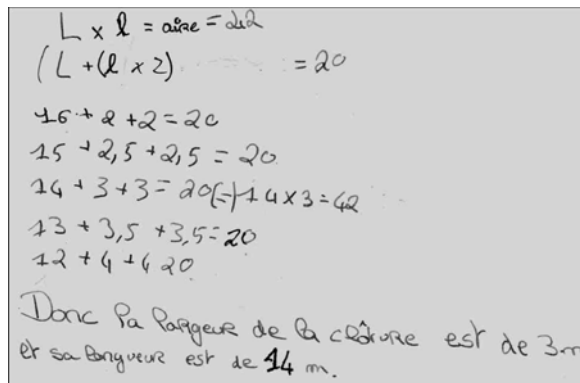 L x l = aire = 42
(L + (l x 2) = 20
16 + 2 + 2 = 20
15 + 2,5 + 2,5 = 20
14 + 3 + 3 = 20 (=) 14 x 3 = 42
13 + 3,5 + 3,5 = 20
12 + 4 + 4 20
Donc la largeur de la clôture est de 3m
et sa longueur est de 14 m.